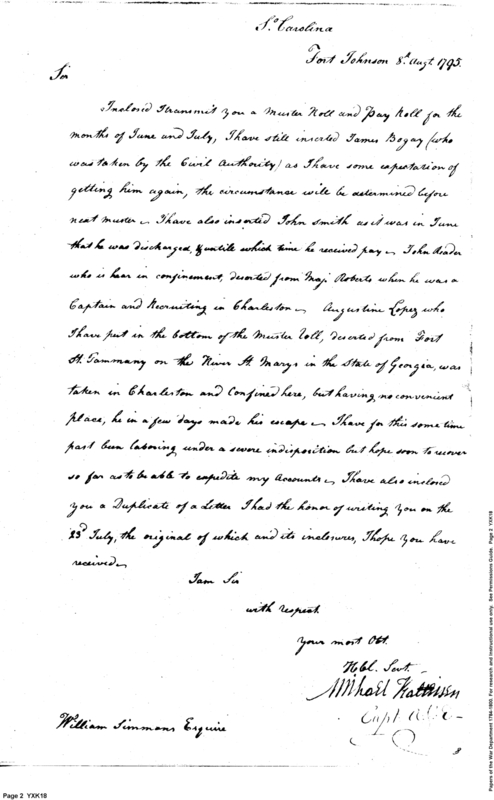 So Carolina
Fort Johnson 8th Augt 1795.
Sir
Inclosed I transmit you a Muster Roll and Pay Roll for the
months of June and July, I have still inserted James Bogay (who
was taken by the Civil Authority) as I have some expectation of
getting him again, the circumstance will be determined before
next muster. I have also inserted John Smith as it was in June
that he was discharged, & untile which time he received pay. John Reader
who is hear in confinement, deserted from Maj. Roberts when he was a
Captain and Recruiting in Charleston. Augustine Lopez who
I have put in the bottom of the Muster Roll, deserted from Fort
St. Tammany on the River St. Marys in the State of Georgia, was
taken in Charleston and Confined here, but having no convenient
place, he in a few days made his escape. I have for this some time
past been laboring under a severe indisposition but hope soon to recover
so far as to be able to expedite my Accounts. I have also inclosed
you a Duplicate of a Letter I had the honor of writing you on the
23d July, the original of which and its inclosures, I hope you have
received.
I am Sir
with respect
your most Obt.
Hbl. Servt.
Michael Kalteisen
Capt
William Simmons Esquire
Page 2 YXK18
Papers of the War Department 1784-1800. For research and instructional use only. See Permissions Guide. Page 2 YXK18